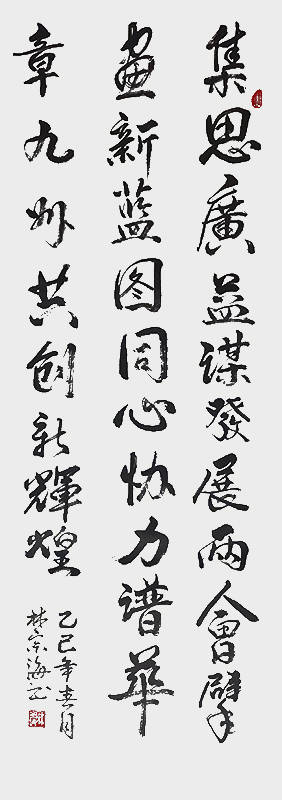 集思廣益謀發展兩會擘
画新蓝图同心协力谱華
章九州共创新輝煌
乙巳年春月
林宗海书